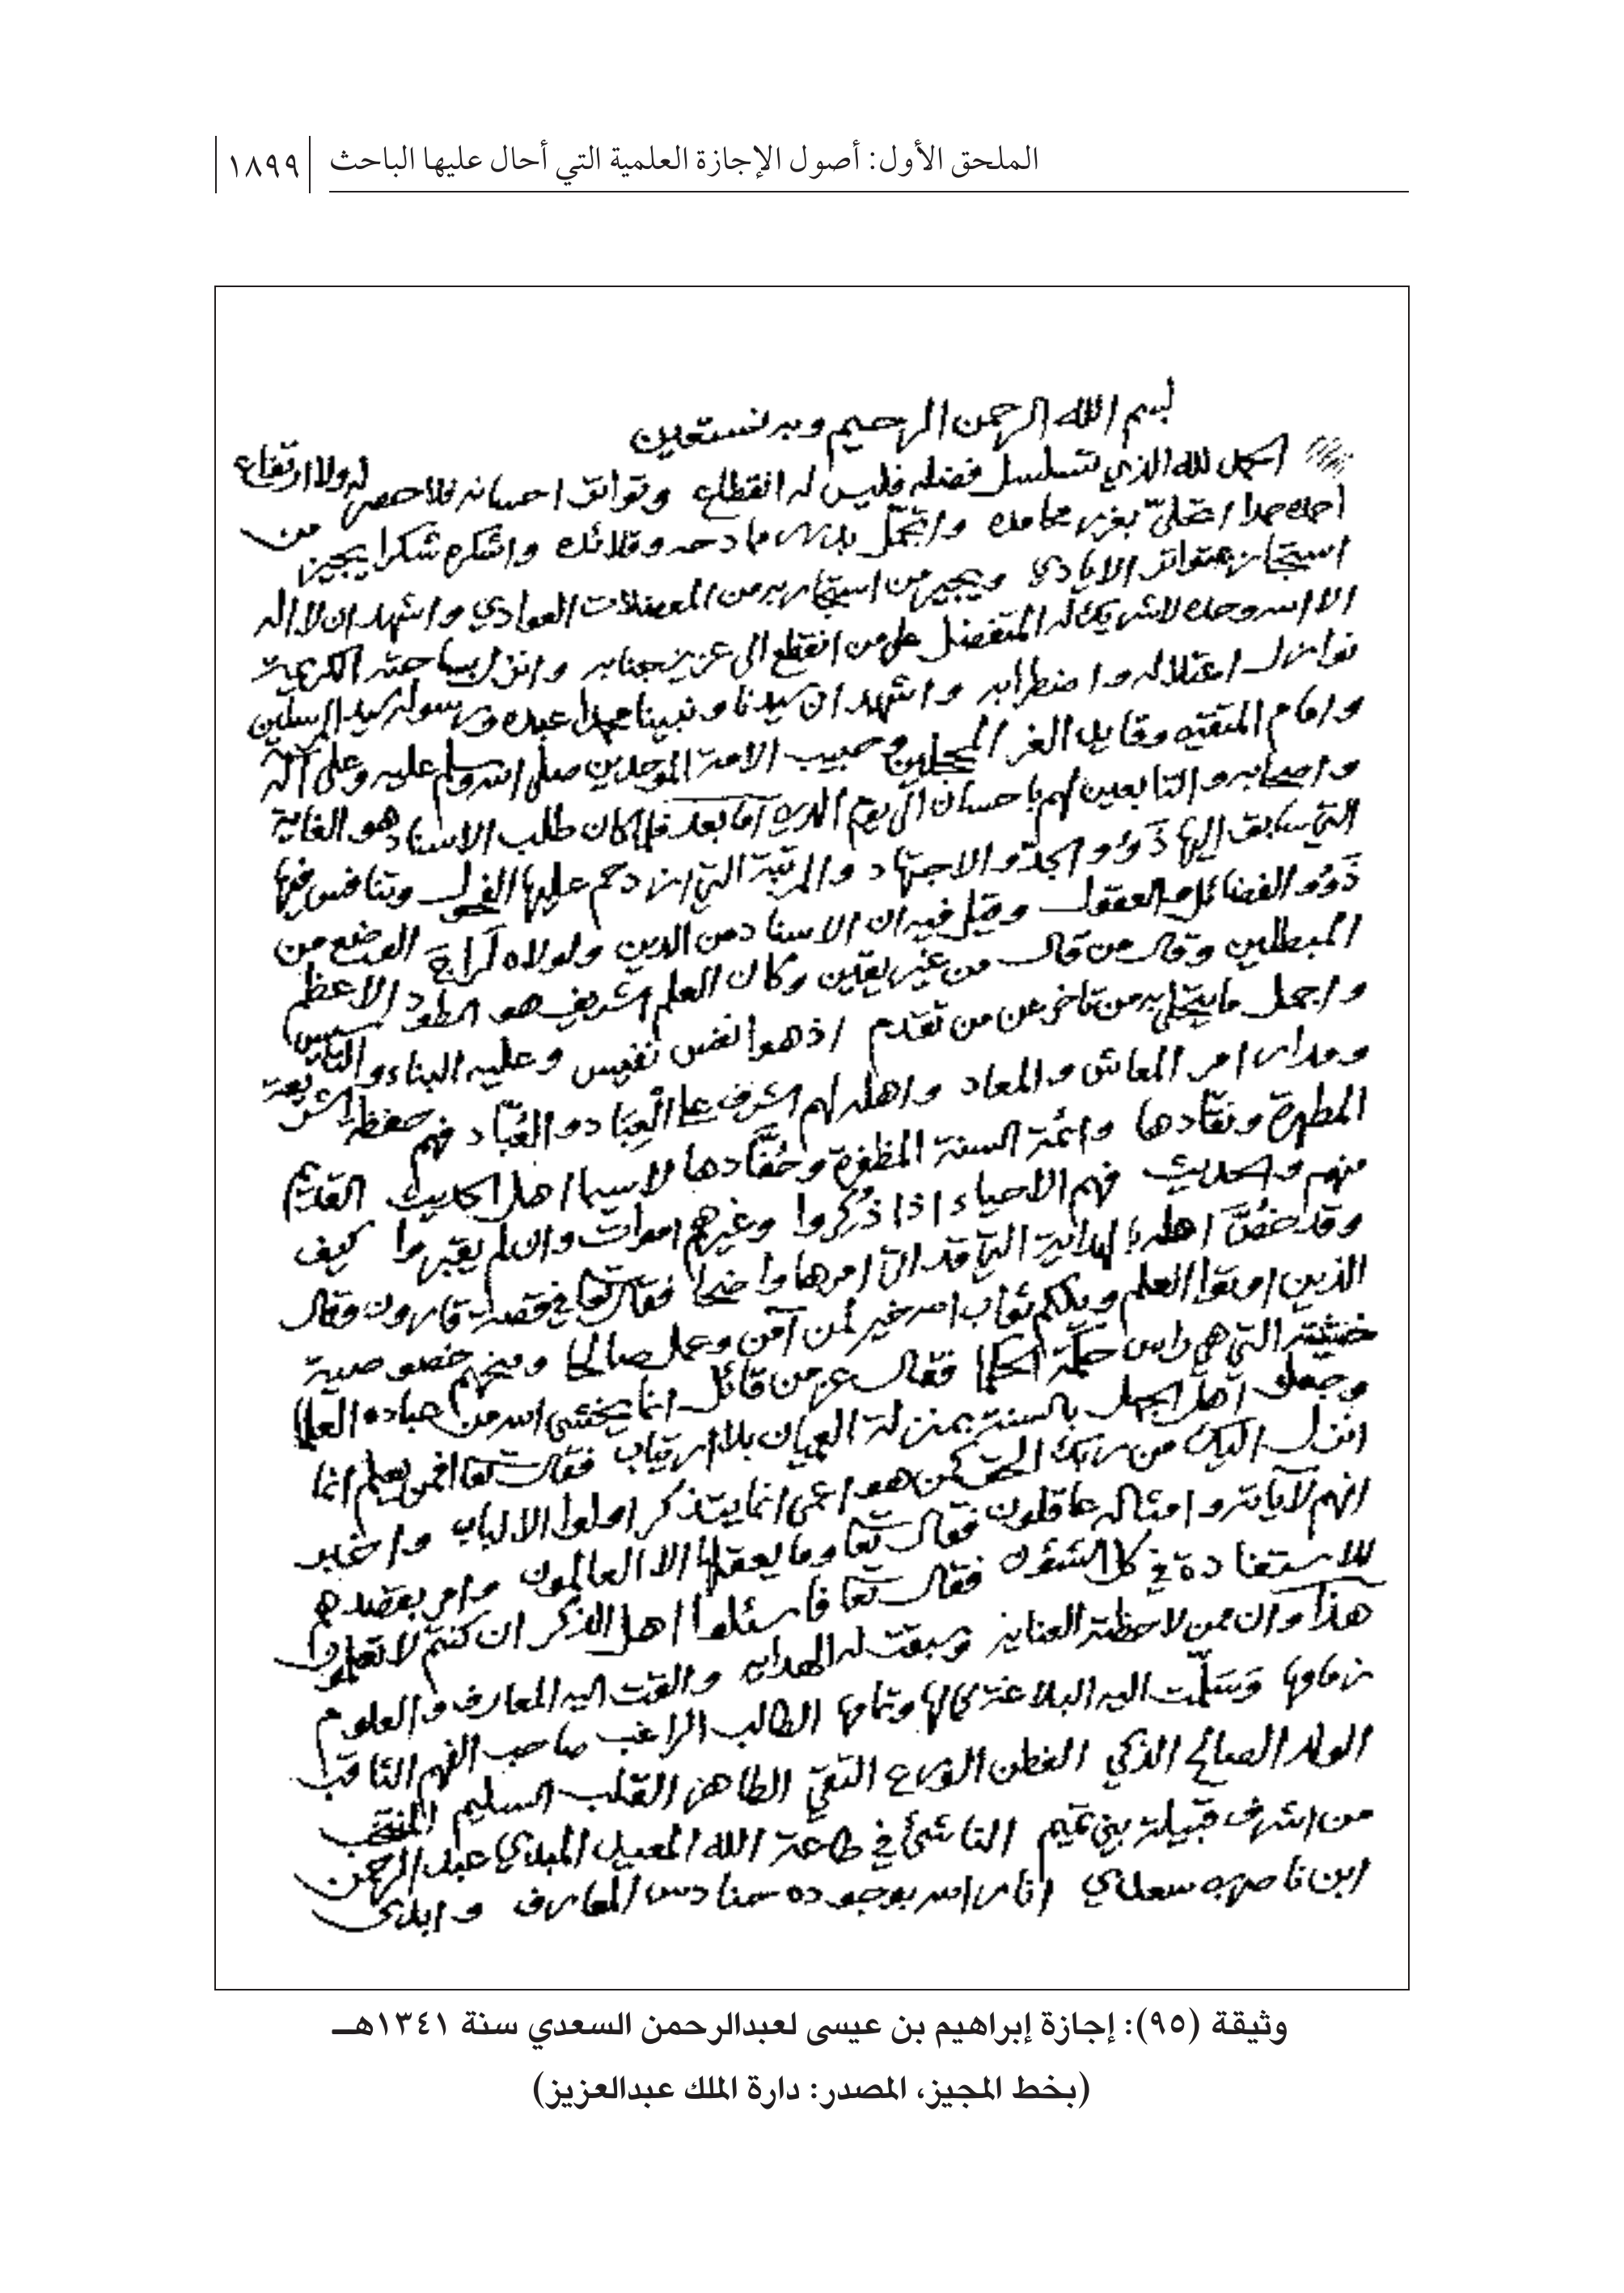 الملحق الأول: أصول الإجازة العلمية التي أحال عليها الباحث
١٨٩٩
بسم الله الرحمن الرحيم وبه نستعين
الحمد لله الذي تسلسل فضله فليس له انقطاع وتواتر احسانه فلا حصر له ولا ارتفاع
احمده حمدا اتحلى بغرر محامده واتجمل بدرر مادحه وقلائده واشكره شكرا يجيز من
استجازه متواتر الايادي ويجير من استجار به من المعضلات العوادي واشهد ان لا اله
الا الله وحده لا شريك له المتفضل على من انقطع الى عزيز جنابه وانزل بساحته الكريمة
نوازل اعتلاله واضطرابه واشهد ان سيدنا ونبينا محمدا عبده ورسوله سيد المرسلين
وامام المتقين وقايد الغر المحجلين وحبيب الامة الموحدين صلى الله وسلم عليه وعلى آله
واصحابه والتابعين لهم باحسان الى يوم الدين اما بعد فلما كان طلب الاسناد هو الغاية
التي سابق إليها ذَوُو الجدّ والاجتهاد والمرتبة التي ازدحم عليها الفحول وتنافس فيها
ذَوُو الفضائل والعقول وقيل فيه ان الاسناد من الدين ولولاه لَرَاجَ الوضع من
المبطلين وقال من قال من غير يقين وكان العلم الشريف هو الطود الاعظم
واجمل ما يتحلى به من تاخر عن من تقدم اذ هو انفس نفيس وعليه البناء والتأسيس
ومدار امر المعاش والمعاد واهله لهم الشرف على العِبَاد والعُبَّاد فهم حفظة الشريعة
المطهرة ونقّادها وائمة السنة المظفرة وحُفَّادها لا سيما اهل الحديث القديم
منهم والحديث فهم الاحياء اذا ذُكروا وغيرهم اموات وان لم يقبروا كيف
وقد خصَّ اهله بالهداية التي قد اتى امرها واضحا فقال تعالى في قصة قارون وقال
الذين اوتوا العلم ويلكم ثواب الله خير لمن آمن وعمل صالحا ومنحهم خصوصية
خشيته التي هي راس حكمة الحكما فقال عز من قائل انما يخشى الله من عباده العلما
وجعل اهل الجهل بالسنة بمنزلة العميان بلا ارتياب فقال تعالى افمن يعلم انما
انزل اليك من ربك الحق كمن هو اعمى انما يتذكر اولوا الالباب واخبر
انهم لآياته وامثاله عاقلون فقال تعالى وما يعقلها الا العالمون وامر بقصدهم
للاستفادة في كل الشؤن فقال تعالى فاسئلوا اهل الذكر ان كنتم لا تعلمون
هذا وان ممن لاحظته العنايه وسبقت له الهدايه والقت اليه المعارف والعلوم
زمامها وَسَلَّمت اليه البلاغة كمالها وتمامها الطالب الراغب صاحب الفهم الثاقب
الولد الصالح الذكي الفطن الورع التقيّ الطاهر القلب السليم المنتخب
من اشرف قبيلة بني تميم الناشئ في طاعة الله المعيد المبدي عبد الرحمن
ابن ناصر سعدي انار الله بوجوده حنادس المعارف وابدى
وثيقة (٩٥): إجازة إبراهيم بن عيسى لعبدالرحمن السعدي سنة ١٣٤١هـ
(بخط المجيز، المصدر: دارة الملك عبدالعزيز)